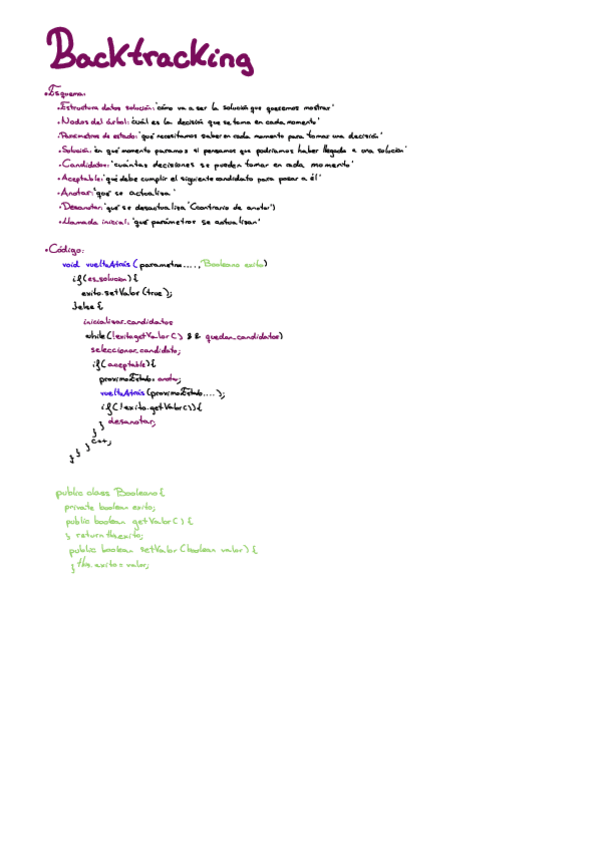 Backtracking
• Esquema:
• Estructura datos solución: 'cómo va a ser la solución que queremos mostrar'
• Nodos del árbol: 'cuál es la decisión que se toma en cada momento'
• Parámetros de estado: 'qué necesitamos saber en cada momento para tomar una decisión'
• Solución: 'en qué momento paramos si pensamos que podríamos haber llegado a una solución'
• Candidatos: 'cuántas decisiones se pueden tomar en cada momento'
• Aceptable: 'qué debe cumplir el siguiente candidato para pasar a él'
• Anotar: 'qué se actualiza'
• Desanotar: 'qué se desactualiza' (contrario de anotar)
• Llamada inicial: 'qué parámetros se actualizan'
• Código:
void vueltaAtrás (parametro...., Booleano exito)
if (es_solucion) {
exito.setValor (true);
} else {
inicializar_candidatos
while (!exito.getValor() && quedan_candidatos)
seleccionar_candidato;
if (aceptable) {
proximoEstado = anotar;
vueltaAtrás (proximoEstado....);
if (!exito.getValor()) {
} desanotar;
}
} c++;
} }
public class Booleano {
private boolean exito;
public boolean getValor() {
} return this.exito;
public boolean setValor (boolean valor) {
} this.exito = valor;